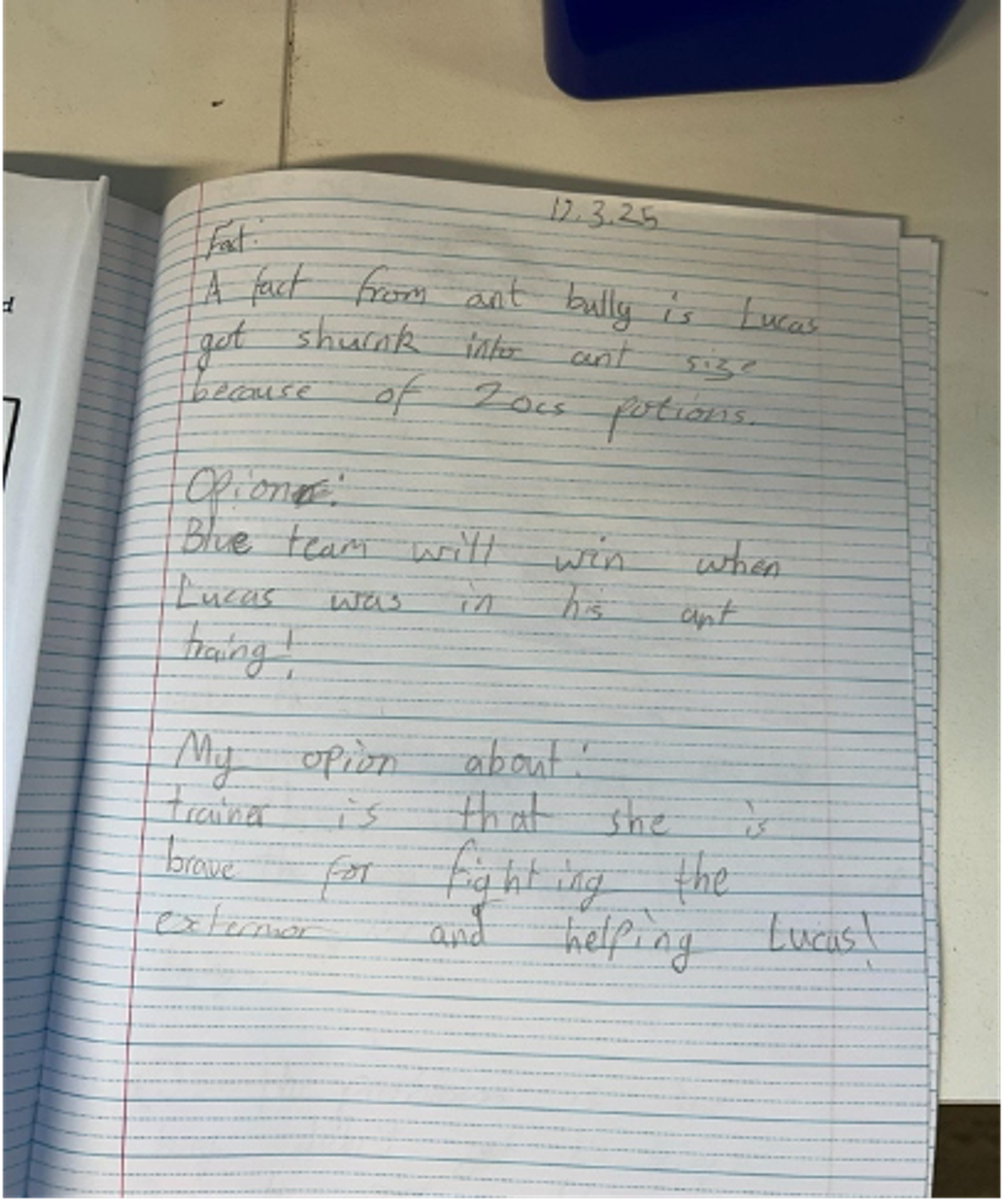 17.3.25
Fact:
A fact from ant bully is Lucas
got shurnk into ant size
because of Zocs potions.
Opion:
Blue team will win when
Lucas was in his ant
traing!
My opion about:
trainer is that she is
brave for fighting the
extermor and helping Lucas!
d